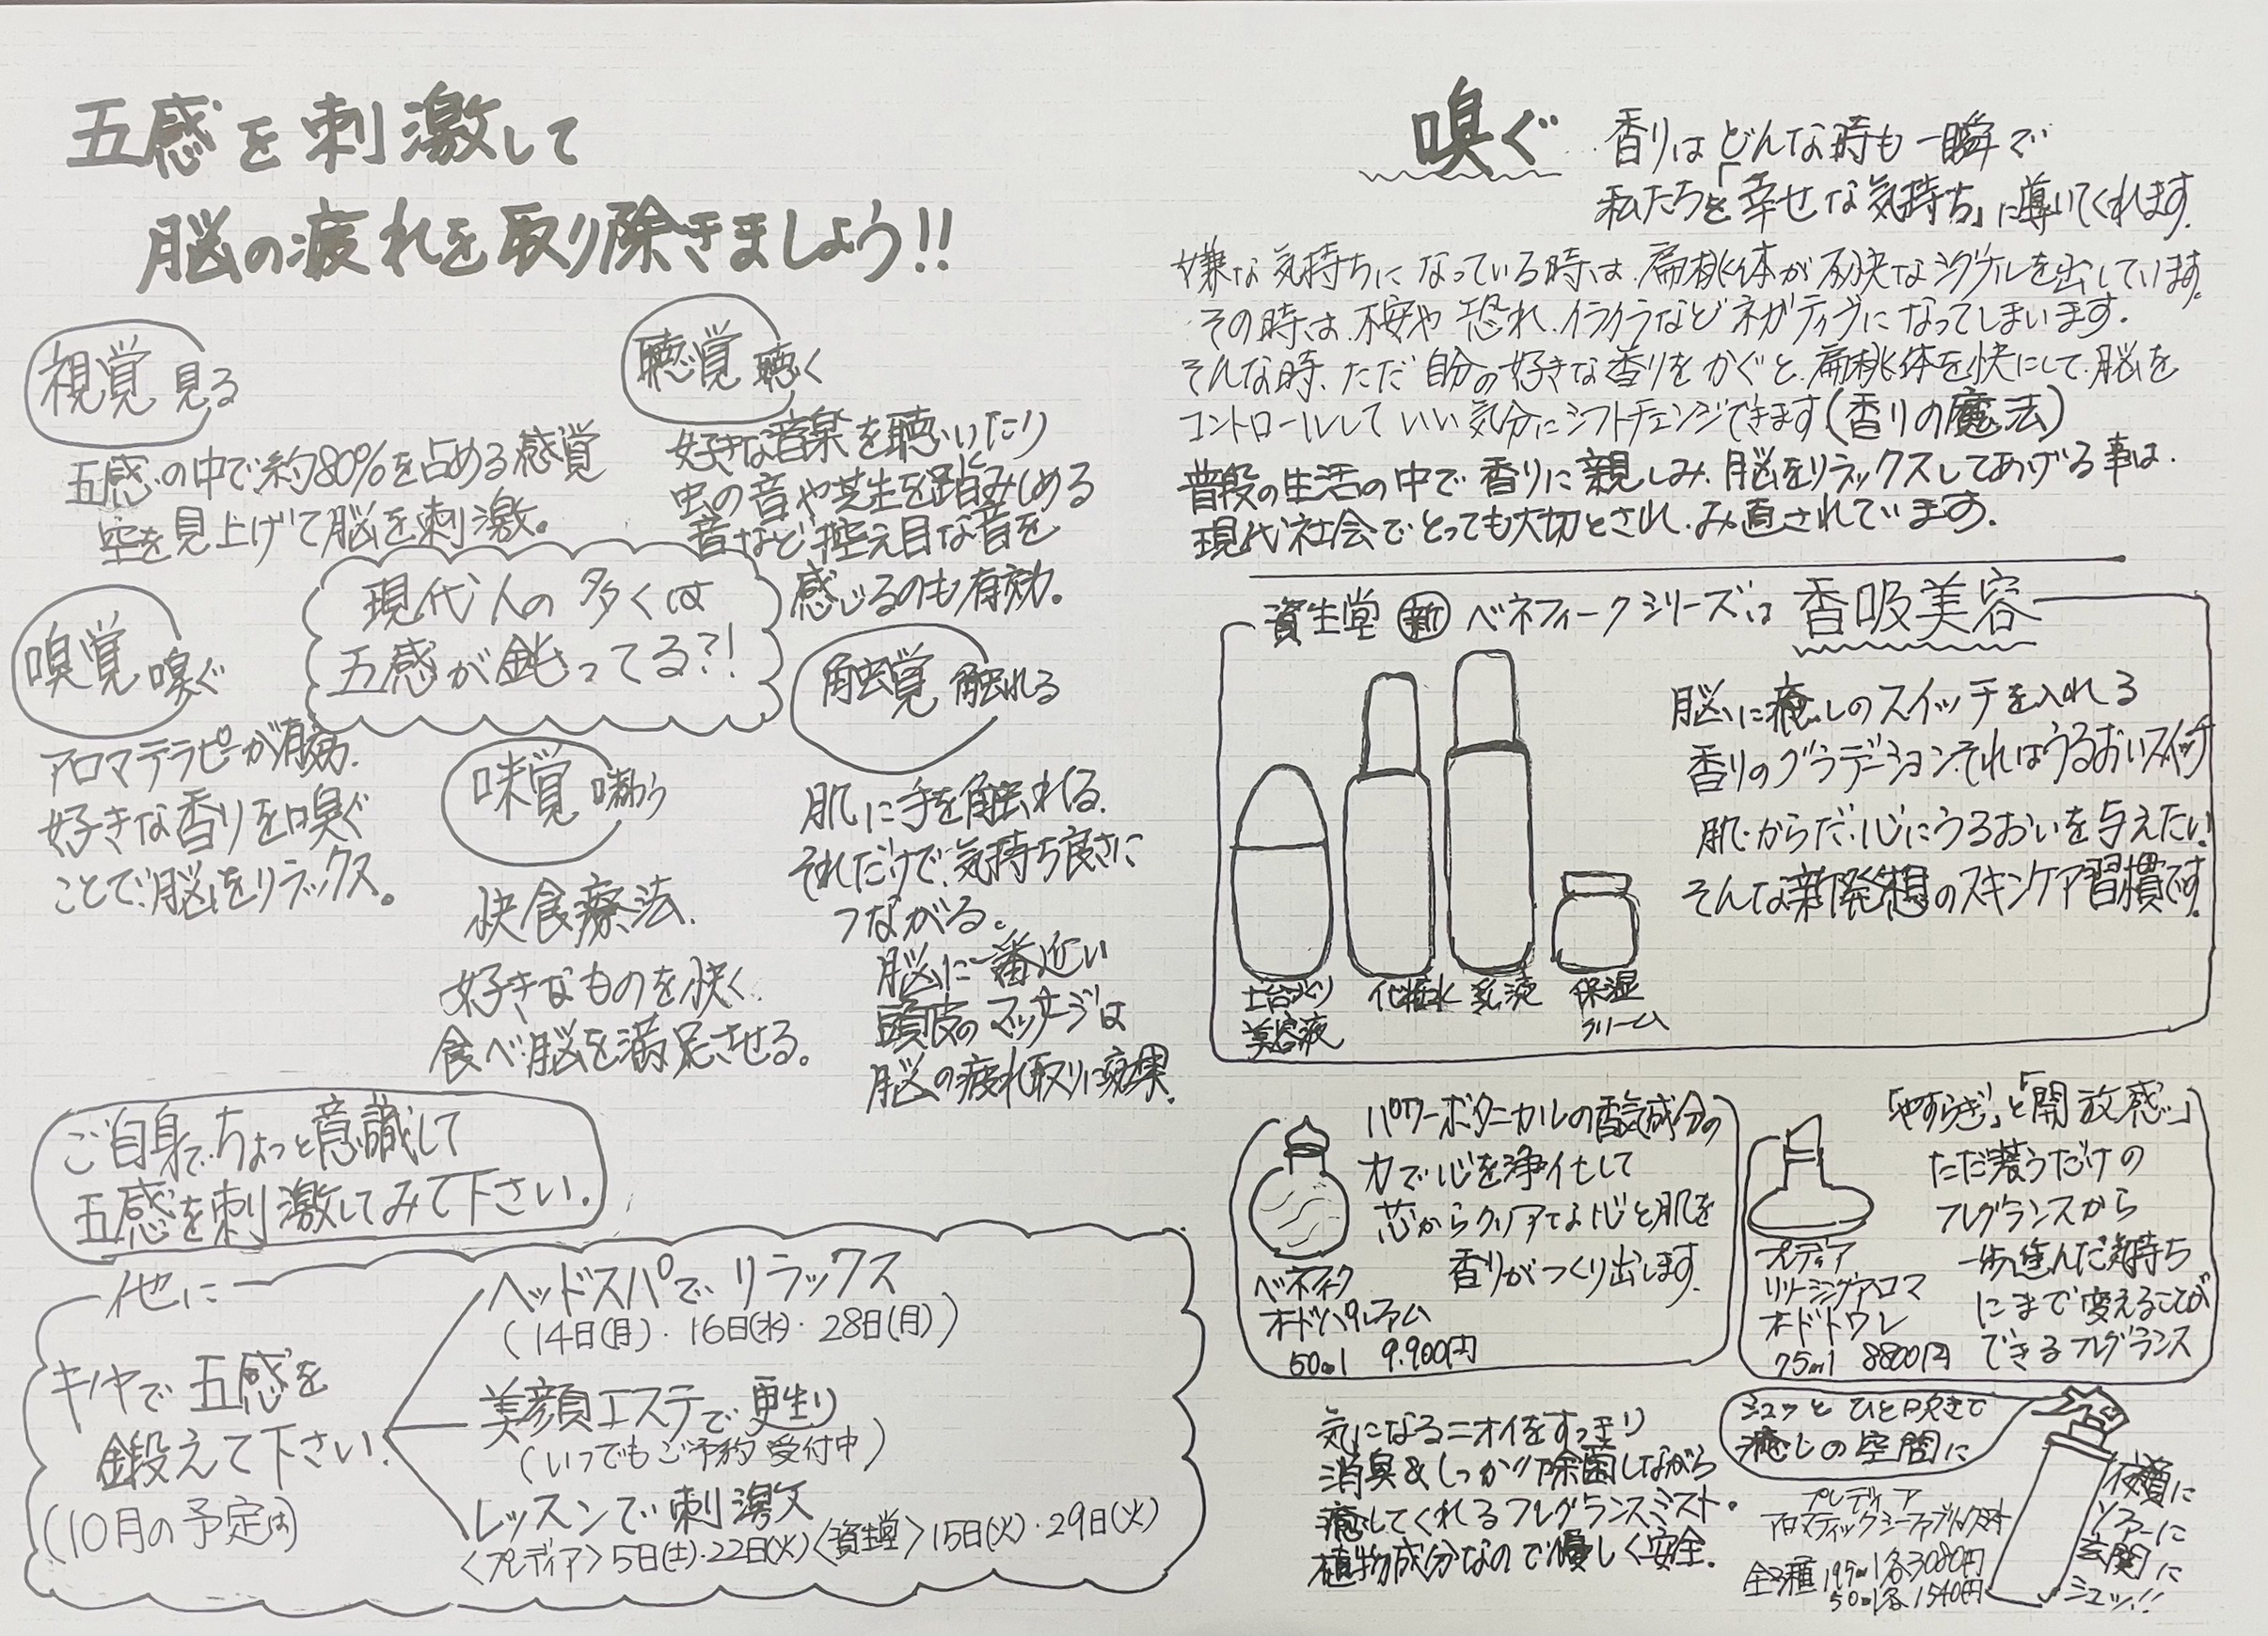 五感を刺激して
脳の疲れを取り除きましょう!!
視覚 見る
五感の中で約80%を占める感覚
空を見上げて脳を刺激。
聴覚 聴く
好きな音楽を聴いたり
虫の音や芝生を踏みしめる
音など控え目な音を
感じるのも有効。
現代人の多くは
五感が鈍ってる?!
嗅覚 嗅ぐ
アロマテラピーが有効.
好きな香りを嗅ぐ
ことで脳をリラックス。
味覚 味わう
快食療法.
好きなものを快く
食べ脳を満足させる。
触覚 触れる
肌に手を触れる.
それだけで気持ち良さに
つながる。
脳に一番近い
頭皮のマッサージは
脳の疲れ取りに効果.
ご自身でちょっと意識して
五感を刺激してみて下さい.
他に
キノヤで五感を
鍛えて下さい.
(10月の予定は)
ヘッドスパでリラックス
(14日(月)・16日(水)・28日(月))
美顔エステで更生り
(いつでもご予約受付中)
レッスンで刺激
<プレディア>5日(土)・22日(火)<資生堂>15日(火)・29日(火)
嗅ぐ
香りはどんな時も一瞬で
私たちを「幸せな気持ち」に導いてくれます.
嫌な気持ちになっている時は、扁桃体が不快なシグナルを出しています。
その時は、不安や恐れ、イライラなどネガティブになってしまいます.
そんな時、ただ自分の好きな香りをかぐと、扁桃体を快にして、脳を
コントロールしていい気分にシフトチェンジできます(香りの魔法)
普段の生活の中で香りに親しみ、脳をリラックスしてあげる事は、
現代社会でとっても大切とされ、み直されています.
資生堂 新 ベネフィークシリーズは 香吸美容
脳に癒しのスイッチを入れる
香りのグラデーションそれはうるおいスイッチ
肌・からだ・心にうるおいを与えたい!
そんな新発想のスキンケア習慣です.
土台作り
美容液
化粧水
乳液
保湿
クリーム
パワーボタニカルの香気成分の
力で心を浄化して
芯からクリアな心と肌を
香りがつくり出します.
ベネフィーク
オードパルファム
50ml 9.900円
「やすらぎ」と「開放感」
ただ装うだけの
フレグランスから
一歩進んだ気持ち
にまで変えることが
できるフレグランス
プレディア
リリーシングアロマ
オードトワレ
75ml 8800円
気になるニオイをすっきり
消臭&しっかり除菌しながら
癒してくれるフレグランスミスト。
植物成分なので優しく安全.
シュッとひと吹きで
癒しの空間に
プレディア
アロマティックシーファブリックミスト
全3種 195ml各3080円
50ml各1540円
夜寝に
ソファーに
玄関に
シュッ!!